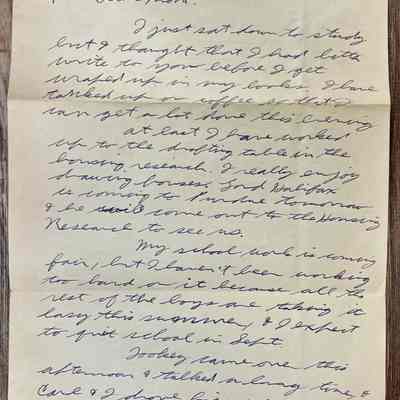 I just sat down to study
but I thought that I had bette
write to you before I get
wraped up in my books. I have
tanked up on coffee so that I
can get a lot done this evening
At last I have worked
up to the drafting table in the
housing research. I really enjoy
drawing houses. Lord Halifax
is coming to Purdue tomorrow
& he will come out to the Housing
Research to see us.
My school work is coming
fair, but I haven't been working
to hard on it because all the
rest of the boys are taking it
easy this summer, & I expect
to quit school in Sept.
came over this
afternoon & talked a long time &
Carl & I drove